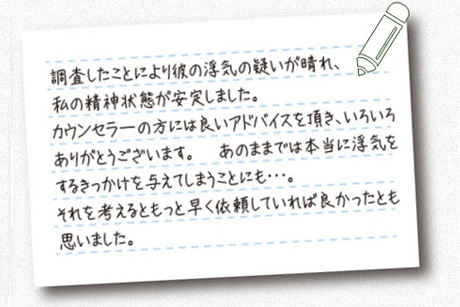 調査したことにより彼の浮気の疑いが晴れ、
私の精神状態が安定しました。
カウンセラーの方には良いアドバイスを頂き、いろいろ
ありがとうございます。　あのままでは本当に浮気を
するきっかけを与えてしまうことにも・・・。
それを考えるともっと早く依頼していれば良かったとも
思いました。